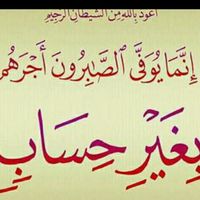 أعوذ بالله من الشيطان الرجيم
إِنَّمَا يُوَفَّى ٱلصَّـٰبِرُونَ أَجْرَهُم
بِغَيْرِ حِسَابٍ